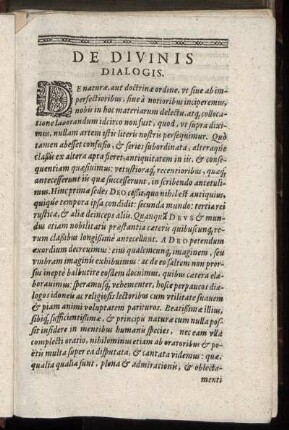 DE DIVINIS
DIALOGIS.
DE naturæ, aut doctrinæ ordine, vt siue ab im-
perfectioribus, siue à notioribus inciperemus,
nobis in hoc materiarum delectu, atq, colloca-
tione laborandum idcirco non fuit, quod, vt supra dixi-
mus, nullam artem istis literis nostris persequimur. Quò
tamen abesset confusio, & series subordinata, alteraque
classis ex altera apta fieret, antiquitatem in iis, & conse-
quentiam quæsiuimus; vetustioraq, recentioribus, quæq,
antecesserunt iis quæ successerunt, in scribendo antetuli-
mus. Hinc prima sedes DEO cessit, quo nihil est antiquius,
quique tempora ipsa condidit: secunda mundo: tertia
rustica, & alia deinceps aliis. Quanquã DEVS & mun-
dus etiam nobilitatis præstantia cæteris quibuscunq,
rerum classibus longissimè antecellunt. A DEO petendum
exordium decreuimus: eius qualemcunq, imaginem, seu
vmbram imaginis exhibuimus: ac de eo saltem non pror-
sus ineptè balbutire eosdem docuimus, quibus cætera elabo-
rauimus: speramusq, vehementer, hosce perpaucos dia-
logos idoneis ac religiosis lectoribus cum vtilitate suauem
& piam animi voluptatem parituros. Beatissimæ illius,
sibiq, sufficientissimæ, & principis naturæ cum nulla pos-
sit insidere in mentibus humanis species, nec eam vlla
complecti oratio, nihilominus etiam ab oratoribus & po-
ëtis multa super ea disputata, & cantata videmus: quæ,
qualia qualia sunt, plena & admirationis, & oblecta-
menti